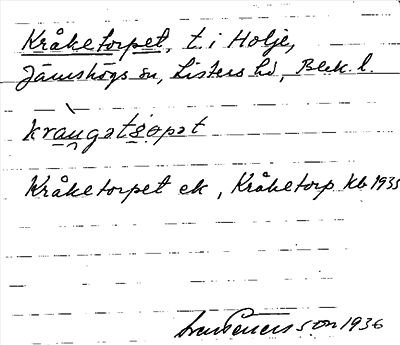 Kråketorpet, t. i Holje,
Jämshögs sn, Listers hd, Blek. l.
Kråketorpet ek, Kråketorp Kb 1935
1936